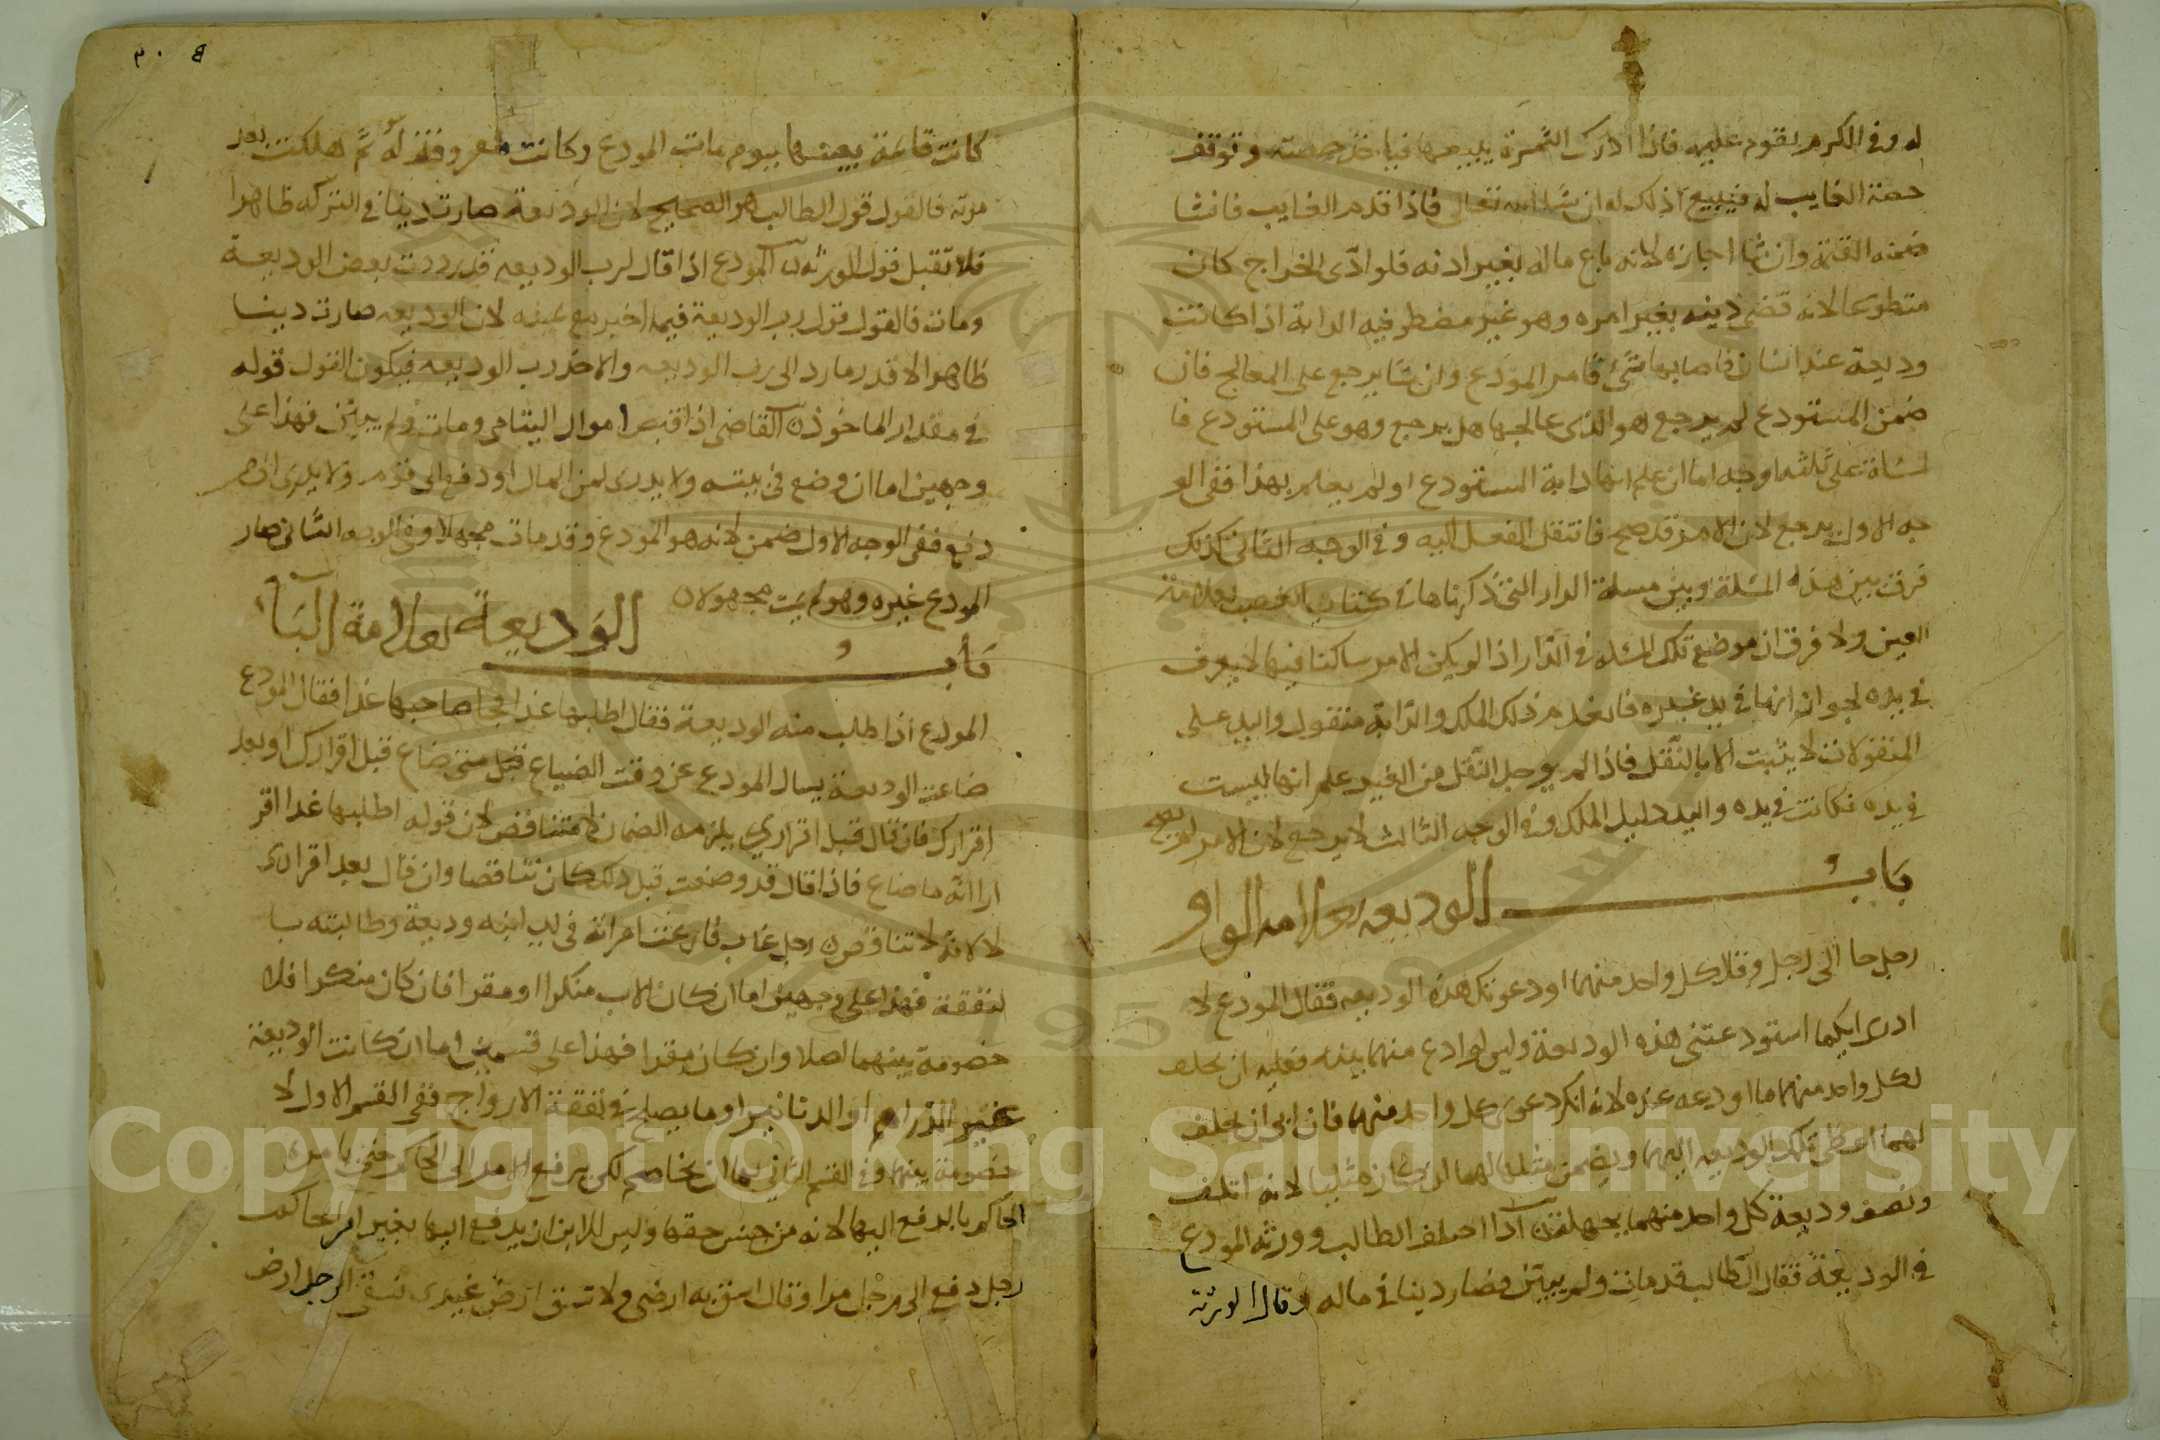 له وفي الكرم يقوم عليه فاذا ادرك الثمرة يبيعها فياخذ حصته وتوقف
حصة الغايب له فيبيع ذلك له ان شا الله تعالى فاذا قدم الغايب فان شا
ضمنه القيمة وان شا اجازه لانه باع ماله بغير اذنه فلو ادى الخراج كان
متطوعا لانه قضى دينه بغير امره وهو غير مضطر فيه الدابة اذا كانت
وديعة عند انسان فاصابها شئ فامر المودع وان شا يرجع على المعالج فان
ضمن المستودع لم يرجع هو الذى عالجها هل يرجع وهو على المستودع فا
لمسئلة على ثلثه اوجه اما ان علم انها دابة المستودع او لم يعلم بهذا ففى الو
جه الاول يرجع لان الامر قد صح فانتقل الفعل اليه وفى الوجه الثانى كذلك
فرق بين هذه المسئلة وبين مسئلة الدار التى ذكرناها فى كتاب الغصب بعلامة
العين ولا فرق ان موضع تلك المسئله فى الدار اذا لم يكن الامر ساكنا فيها لا يعرف
فى يده لجواز انها فى يد غيره فانعدم ذلك الملك والدابة منقول واليد على
المنقولات لا يثبت الا بالنقل فاذا لم يوجد النقل من الغير علم انها ليست
فى يده فكانت فى يده واليد دليل الملك وفى الوجه الثالث لا يرجع لان الامر لم يصح
باب الوديعه بعلامه الواو
رجل جا الى رجل وقال كل واحد منهما اودعوتك هذه الوديعه فقال المودع لا
ادرى ايكما استودعتنى هذه الوديعة وليس لواحد منهما بينه فعليه ان يحلف
لكل واحد منهما ما اودعه عنده لانه انكر دعوى كل واحد منهما فان ابى ان يحلف
لهما اعطى تلك الوديعه اليهما ويضمن مثلها لهما ان كان مثليا لانه اتلف
ونصف وديعة كل واحد منهما بجهله ن اذا اختلف الطالب وورثة المودع
فى الوديعة فقال الطالب قد مات ولم يبين فصار دينا فى ماله وقال الورثة
٣٠ B
كانت قائمة بعينها يوم مات المودع وكانت معروفة له ثم هلكت بعد
موته فالقول قول الطالب هو الصحيح لان الوديعة صارت دينا فى التركه ظاهرا
فلا تقبل قول الورثة ن المودع اذا قال لرب الوديعه قد رددت بعض الوديعة
ومات فالقول قول رب الوديعة فيما اخبر مع عينه لان الوديعه صارت دينا
ظاهرا الا قدر ما رد الى رب الوديعه والاخذ رب الوديعه فيكون القول قوله
فى مقدار الماخوذ ن القاضى اذا قبض اموال اليتامى ومات ولم يبين فهذا على
وجهين اما ان وضع فى بيته ولا يدرى لمن المال او دفع الى قوم ولا يدرى الى من
دفع ففى الوجه الاول ضمن لانه هو المودع وقد مات مجهلا وفى الوجه الثانى صار
المودع غيره وهو لم يمت مجهلا ن
باب الوديعة بعلامة الباء
المودع اذا طلب منه الوديعة فقال اطلبها غدا فجا صاحبها غدا فقال المودع
ضاعت الوديعة يسال المودع عن وقت الضياع قبل متى ضاع قبل اقرارك او بعد
اقرارك فان قال قبل اقرارى يلزمه الضمان لتناقض لان قوله اطلبها غدا اقر
ارا انه ما ضاع فاذا قال قد وضعت قبل ذلك كان تناقضا وان قال بعد اقرارى
لا لانه لا تناقض ن رجل غاب فادعت امراته فى يد ابنه وديعة وطالبته با
لنفقة فهذا على وجهين اما ان كان الاب منكرا او مقرا فان كان منكرا فلا
خصومة بينهما اصلا وان كان مقرا فهذا على قسمين اما ان كانت الوديعة
غير الدراهم او الدنانير او ما يصلح فى نفقة الازواج ففى القسم الاول لا
خصومة بينهما وفى القسم الثانى لها ان تخاصم لكن يرفع الامر الى الحاكم حتى يامره
الحاكم بالدفع اليها لانه من جنس حقها وليس للابن ان يدفع اليها بغير امر الحاكم
رجل دفع الى رجل مرا وقال اسق به ارضى ولا تسق ارض غيرى فسقى الرجل ارض